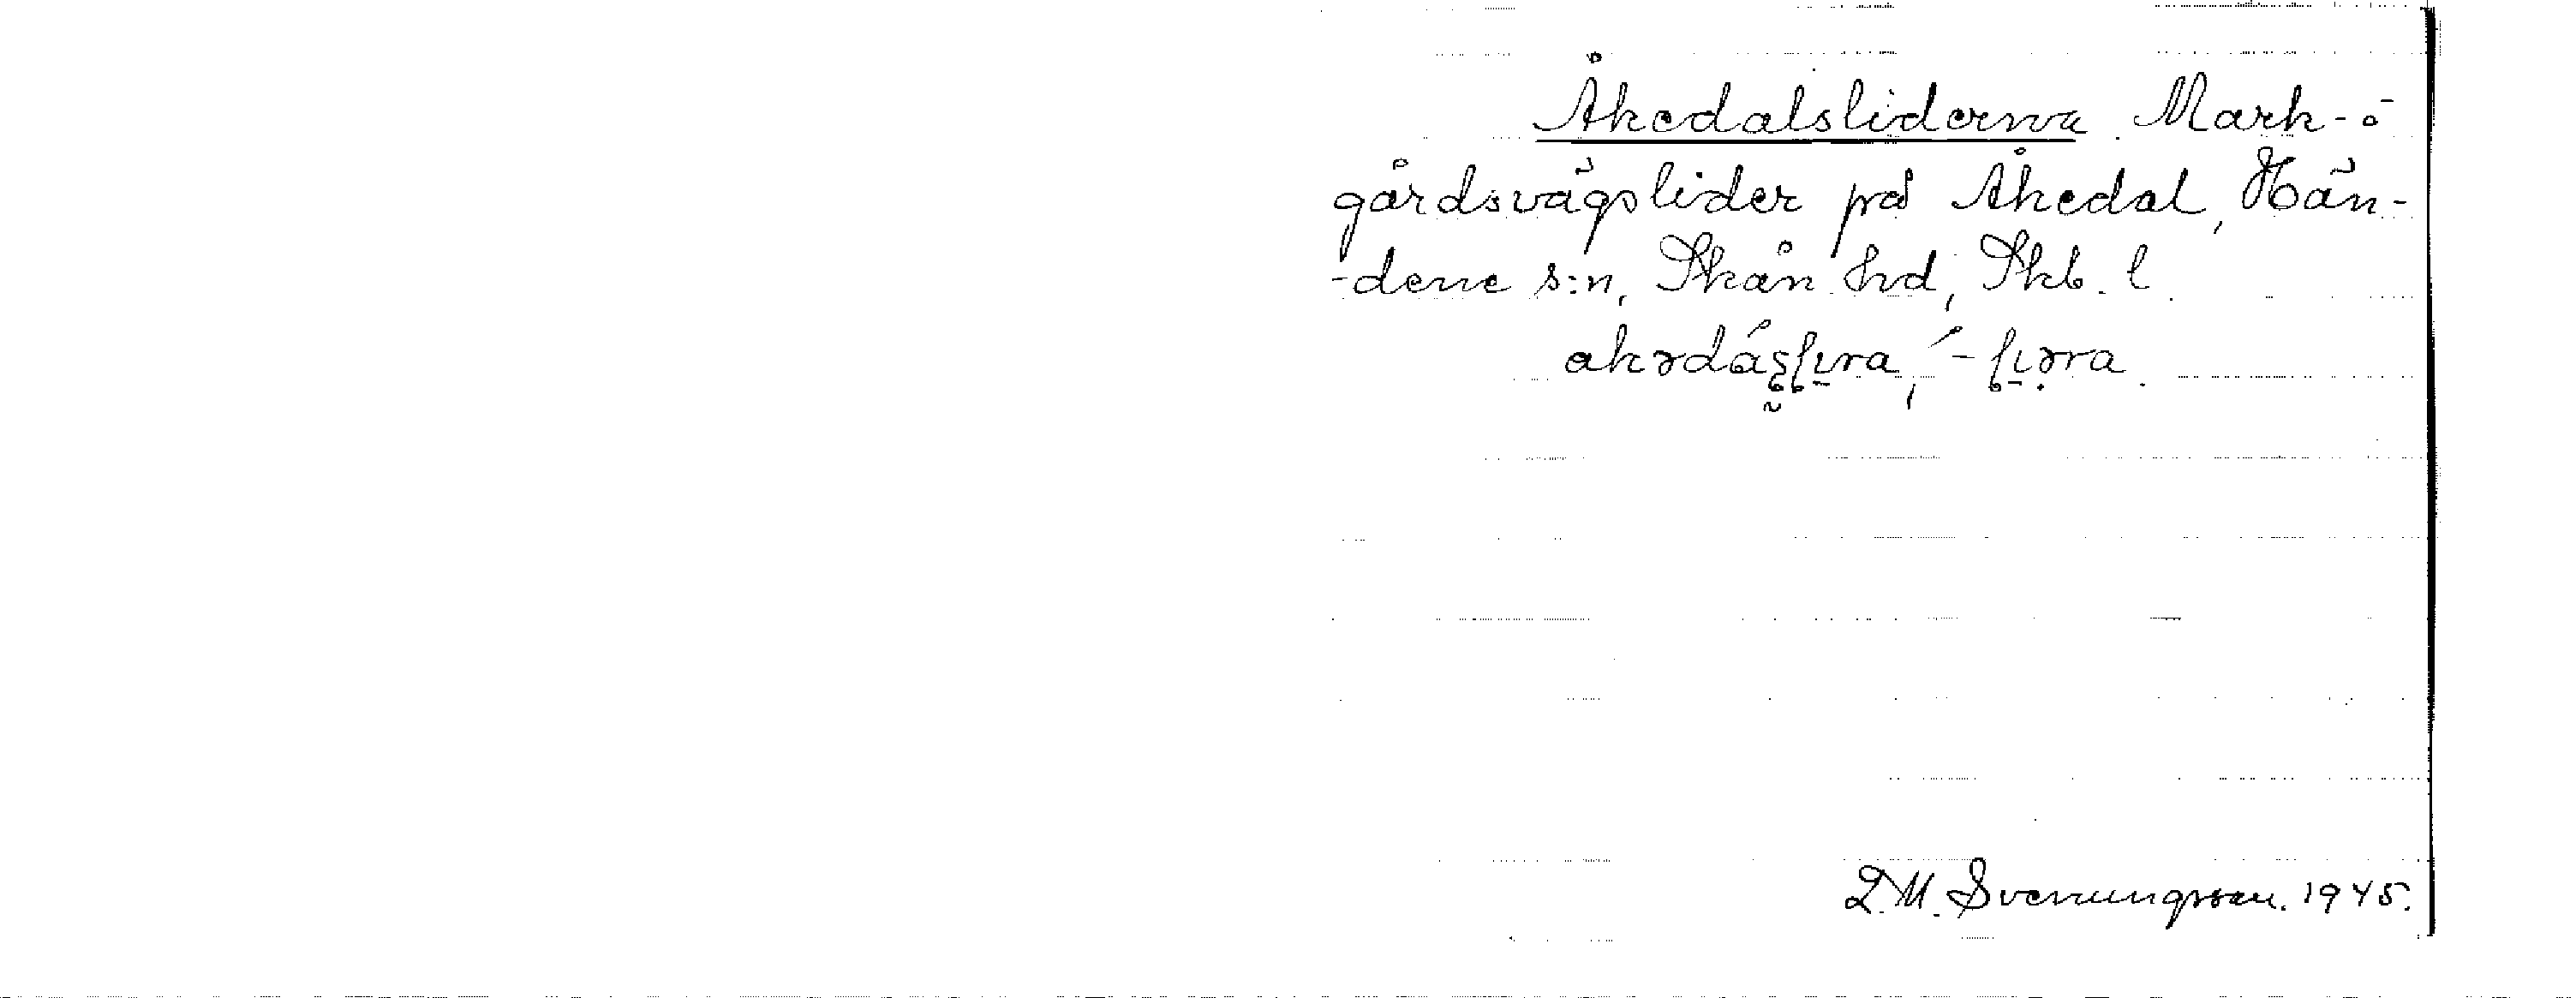 Åkedalsliderna. Mark- o
gårdsvägslider på Åkedal, Hän-
-dene s:n, Skån. hd, Skb. l.
L. M. Svenungsson. 1945.